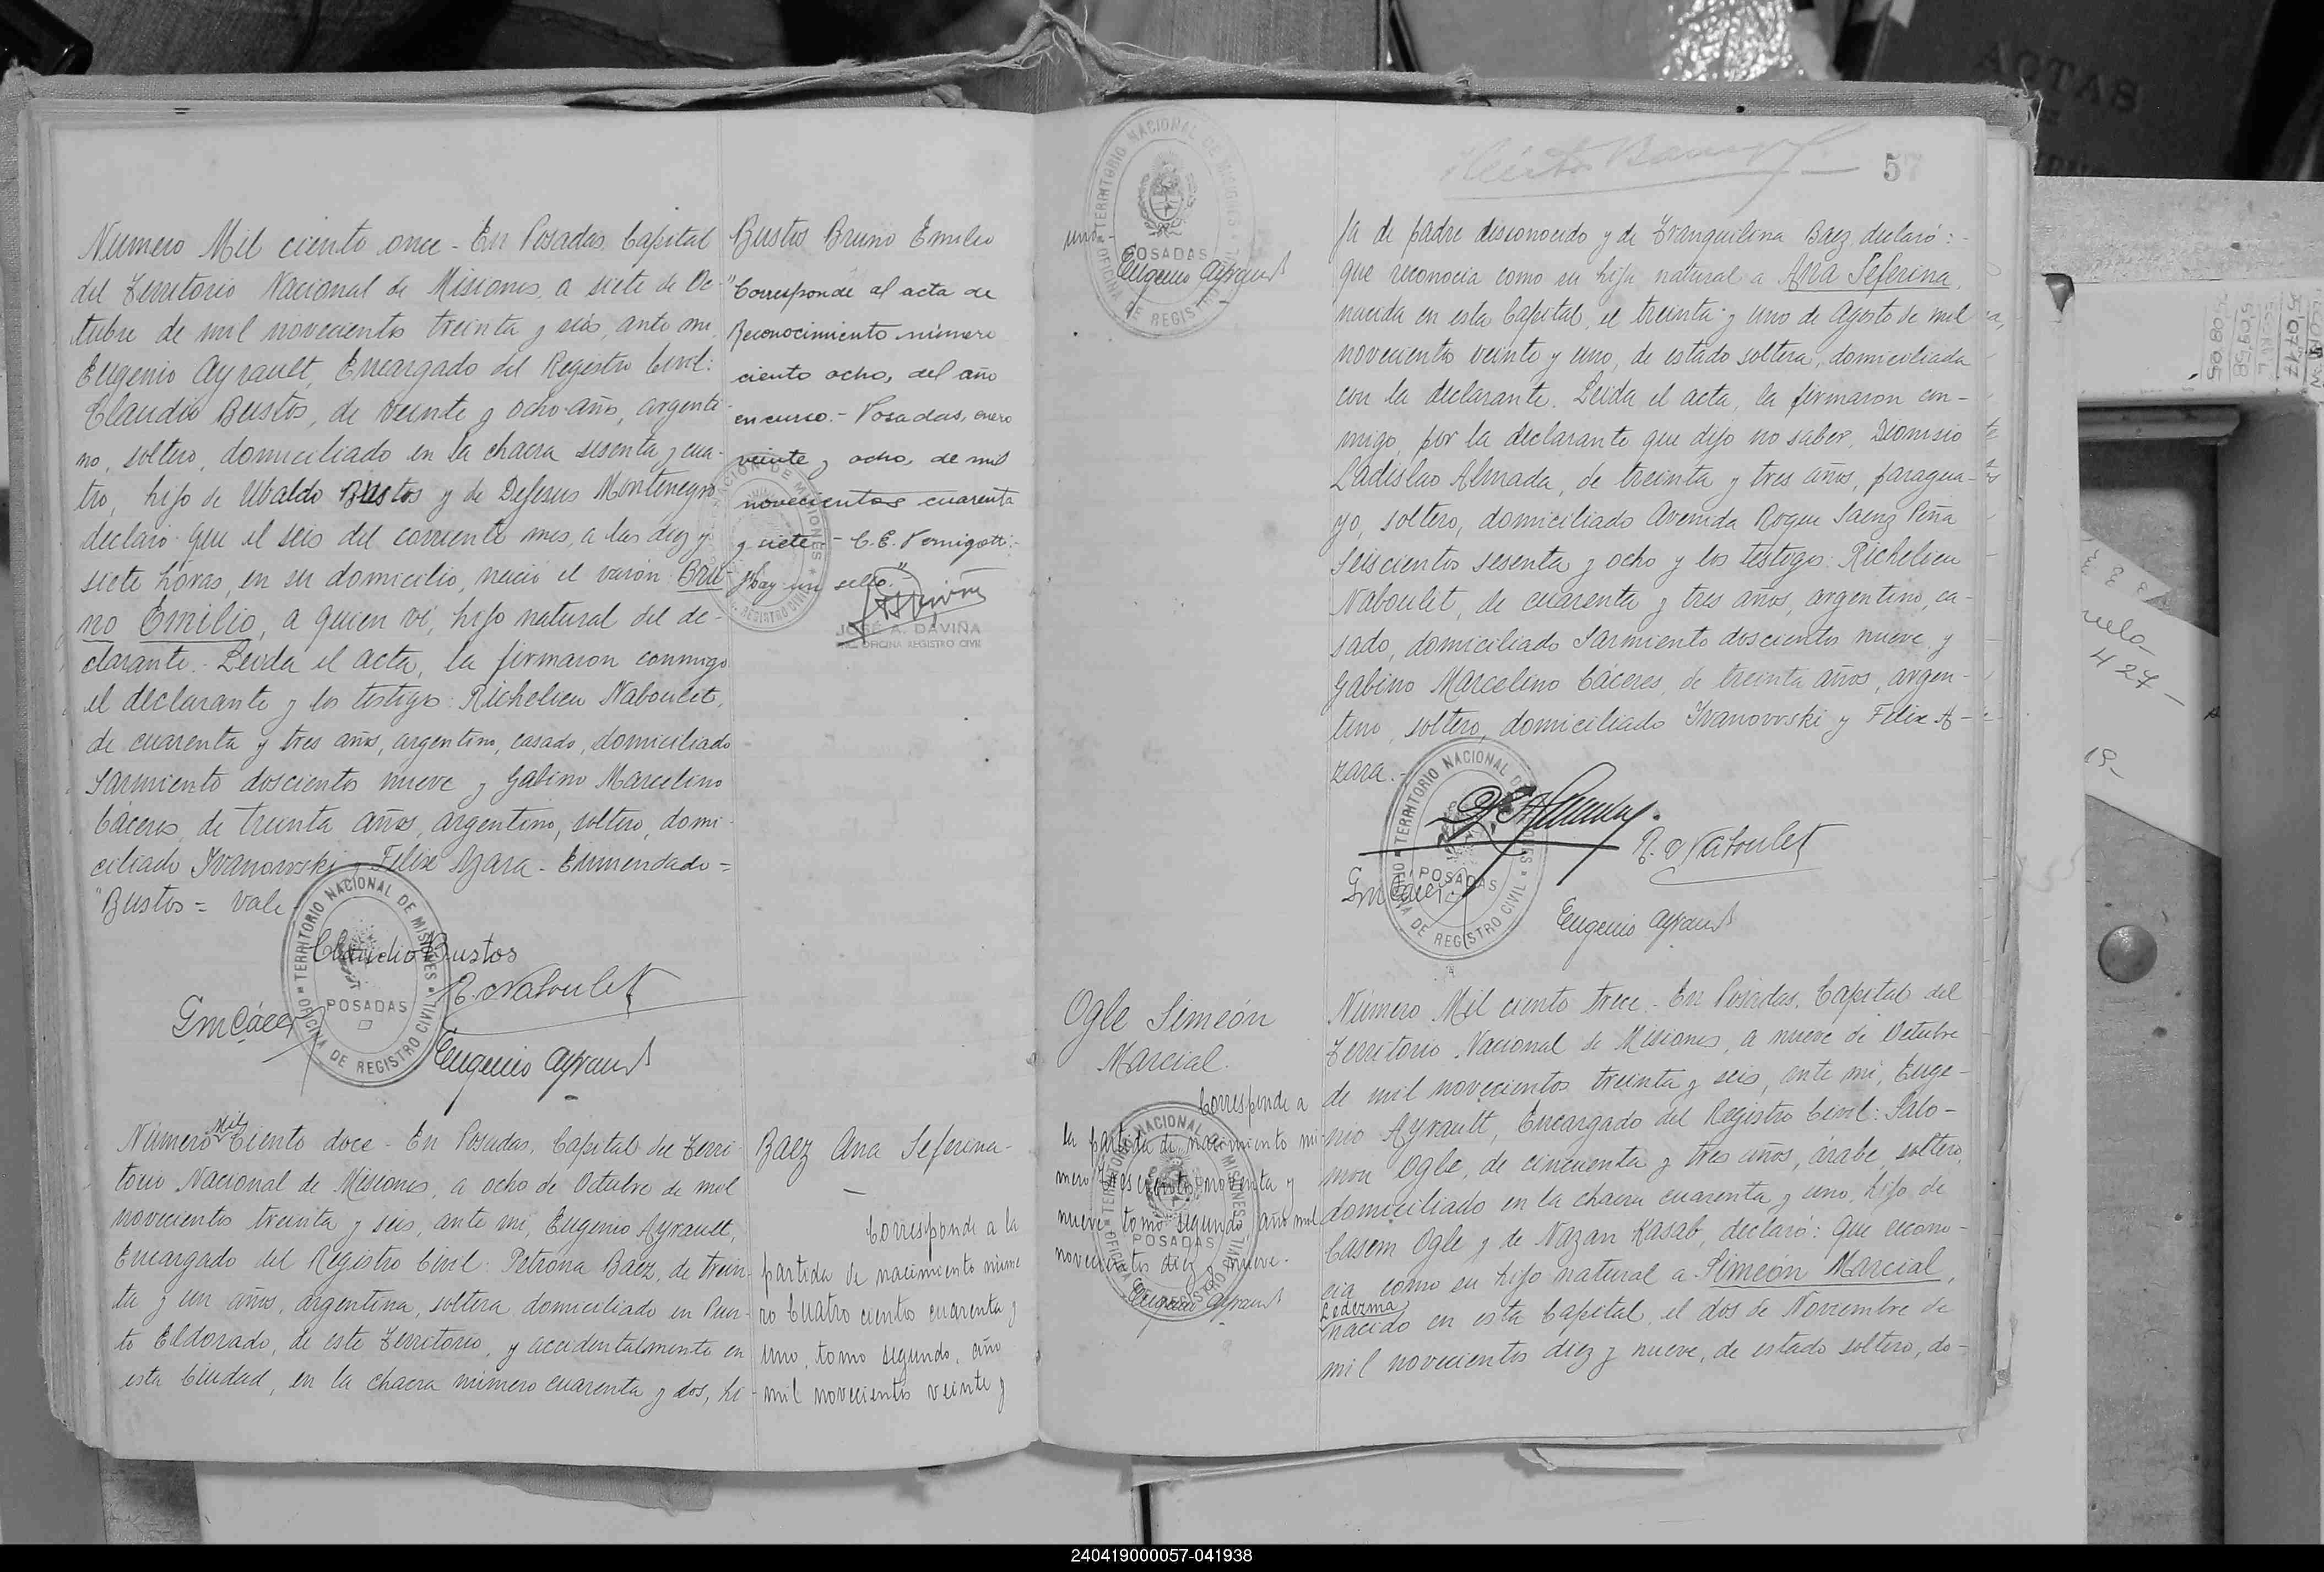 Número Mil ciento once - En Posadas, Capital
del Territorio Nacional de Misiones, a siete de Oc-
tubre de mil novecientos treinta y seis, ante mi,
Eugenio Ayrault, Encargado del Registro Civil:
Claudio Bustos, de veinte y ocho años, argenti-
no, soltero, domiciliado en la chacra sesenta y cua-
tro, hijo de Ubaldo Bustos y de Dejesus Montenegro
declaró: que el seis del corriente mes, a las diez y
siete horas, en su domicilio, nació el varón Bru-
no Emilio, a quien ví, hijo natural del de-
clarante. Leida el acta, la firmaron conmigo
el declarante y los testigos: Richelieu Naboulet,
de cuarenta y tres años, argentino, casado, domiciliado
Sarmiento doscientos nueve y Gabino Marcelino
Cáceres, de treinta años, argentino, soltero, domi-
ciliado Ivanowski y Felix Azara - Enmendado =
"Bustos = vale
Claudio Bustos
R. Naboulet
GmCácer
Eugenio Ayrault
TERRITORIO NACIONAL DE MISIONES
POSADAS
OFICINA DE REGISTRO CIVIL
Bustos Bruno Emilio
"Corresponde al acta de
Reconocimiento número
ciento ocho, del año
en curso. - Posadas, enero
veinte y ocho, de mil
novecientos cuarenta
y siete - C.E. Pernigotti.-
Hay un sello."
JOSÉ A. DAVIÑA
OFICINA REGISTRO CIVIL
Número Mil Ciento doce - En Posadas, Capital del Terri-
torio Nacional de Misiones, a ocho de Octubre de mil
novecientos treinta y seis, ante mi, Eugenio Ayrault,
Encargado del Registro Civil: Petrona Baez, de trein-
ta y un años, argentina, soltera domiciliado en Puer-
to Eldorado, de este Territorio, y accidentalmente en
esta Ciudad, en la chacra número cuarenta y dos, hi-
Baez Ana Seferina-
Corresponde a la
partida de nacimiento núme
ro Cuatro ciento cuarenta y
uno, tomo segundo, año
mil novecientos veinte y
uno-
Eugenio Ayrault
TERRITORIO NACIONAL DE MISIONES
POSADAS
OFICINA DE REGISTRO
57
ja de padre desconocido y de Tranquilina Baez, declaró:-
que reconocia como su hija natural a Ana Seferina,
nacida en esta Capital, el treinta y uno de Agosto de mil
novecientos veinte y uno, de estado soltera, domiciliada
con la declarante. Leida el acta, la firmaron con-
migo, por la declarante que dijo no saber, Dionisio
Ladislao Almada, de treinta y tres años, paragua-
yo, soltero, domiciliado Avenida Roque Saenz Peña
seiscientos sesenta y ocho y los testigos: Richelieu
Naboulet, de cuarenta y tres años, argentino, ca-
sado, domiciliado Sarmiento doscientos nueve y
Gabino Marcelino Cáceres, de treinta años, argen-
tino, soltero, domiciliado Ivanowski y Felix A-
zara.-
R. Naboulet
GmCácer
Eugenio Ayrault
TERRITORIO NACIONAL DE MISIONES
POSADAS
OFICINA DE REGISTRO CIVIL
Ogle Simeón
Marcial.
Corresponde a
la partida de nacimiento nú-
mero trescientos noventa y
nueve, tomo segundo, año mil
novecientos diez y nueve.
Eugenio Ayrault
Número Mil ciento trece - En Posadas, Capital del
Territorio Nacional de Misiones, a nueve de Octubre
de mil novecientos treinta y seis, ante mi, Euge-
nio Ayrault, Encargado del Registro Civil: Salo-
mon Ogle, de cincuenta y tres años, árabe, soltero,
domiciliado en la chacra cuarenta y uno, hijo de
Casem Ogle y de Nazan Kasab, declaró: que recono-
cia como su hijo natural a Simeón Marcial,
Lederma
nacido en esta Capital, el dos de Noviembre de
mil novecientos diez y nueve, de estado soltero, do-
ACTAS
427-
19-
240419000057-041938